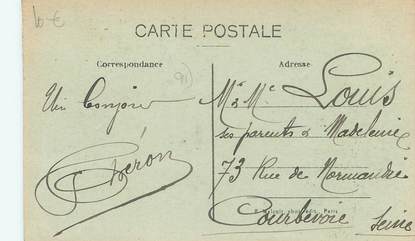 10 €
CARTE POSTALE
Correspondance
Adresse
(91)
Un bonjour
Chéron
Mr & Me Louis
ses parents à Madeleine
73 Rue de Normandie
Courbevoie
Seine
Paris